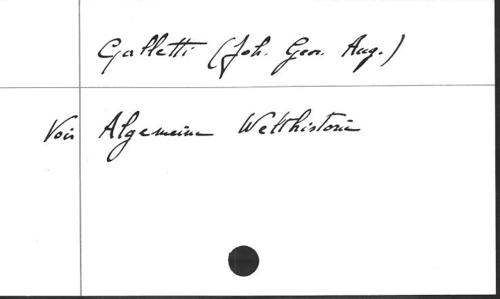 Galletti (Joh. Geor. Aug.)
Voir Algemeine Welthistorie